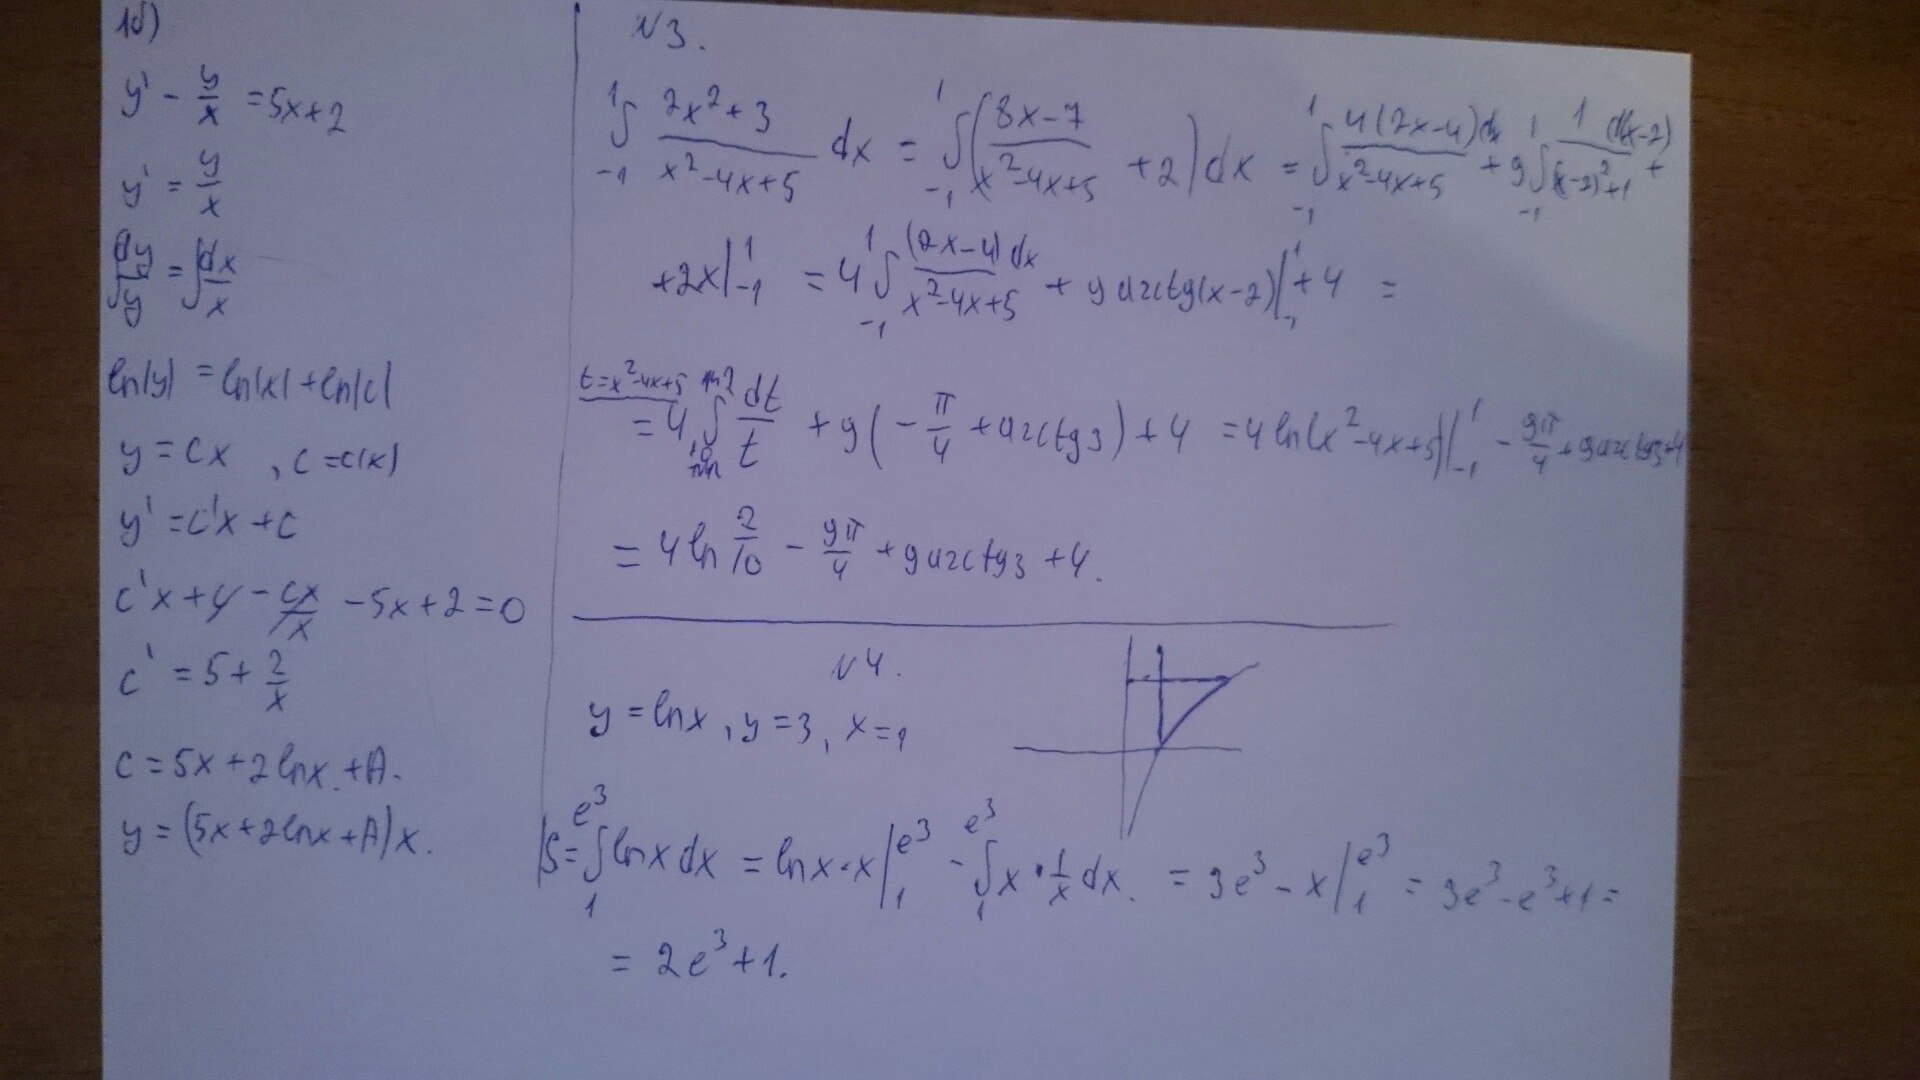 1б)
y' - y/x = 5x+2
y' = y/x
∫dy/y = ∫dx/x
ln|y| = ln|x| + ln|c|
y = cx , c = c(x)
y' = c'x + c
c'x + c - cx/x - 5x + 2 = 0
c' = 5 + 2/x
c = 5x + 2lnx + A.
y = (5x + 2lnx + A)x.
N3.
∫_{-1}^{1} (2x²+3)/(x²-4x+5) dx = ∫_{-1}^{1} ((8x-7)/(x²-4x+5) + 2) dx = ∫_{-1}^{1} 4(2x-4)dx/(x²-4x+5) + 9∫_{-1}^{1} 1/((x-2)²+1) d(x-2) +
+2x|_{-1}^{1} = 4∫_{-1}^{1} (2x-4)dx/(x²-4x+5) + 9arctg(x-2)|_{-1}^{1} + 4 =
t=x²-4x+5
= 4∫_{10}^{2} dt/t + 9(-π/4 + arctg3) + 4 = 4ln(x²-4x+5)|_{-1}^{1} - 9π/4 + 9arctg3+4
= 4ln 2/10 - 9π/4 + 9arctg3 + 4.
N4.
y = lnx, y = 3, x = 1
S = ∫_{1}^{e³} lnx dx = lnx·x|_{1}^{e³} - ∫_{1}^{e³} x·1/x dx. = 3e³ - x|_{1}^{e³} = 3e³ - e³ + 1 =
= 2e³ + 1.